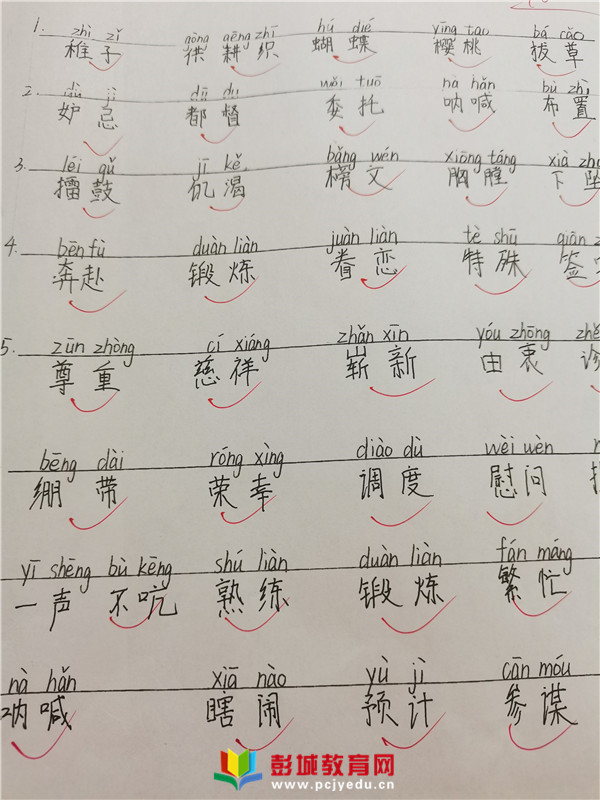 1. zhì zǐ gòng gēng zhī hú dié yīng táo bá cǎo
稚子 供 耕织 蝴蝶 樱桃 拔草
2. dù jì dū du wěi tuō nà hǎn bù zhì
妒忌 都督 委托 呐喊 布置
3. léi gǔ jī kě bǎng wén xiōng táng xià
擂鼓 饥渴 榜文 胸膛 下坠
4. bēn fù duàn liàn juàn liàn tè shū qiān
奔赴 锻炼 眷恋 特殊 签
5. zūn zhòng cí xiáng zhǎn xīn yóu zhōng
尊重 慈祥 崭新 由衷 诊
bēng dài róng xìng diào dù wèi wèn
绷带 荣幸 调度 慰问
yī shēng bù kēng shú liàn duàn liàn fán máng
一声不吭 熟练 锻炼 繁忙
nà hǎn xiā nào yù jì cān móu
呐喊 瞎闹 预计 参谋
彭城教育网
www.pcjyedu.cn